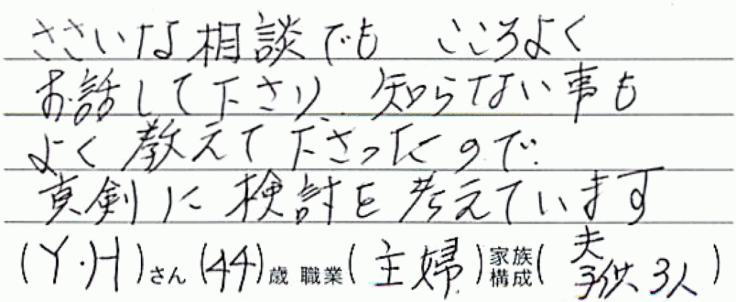 ささいな相談でも こころよく
お話して下さり、知らない事も
よく教えて下さったので
真剣に検討を考えています
(Y・H)さん(44)歳 職業(主婦)家族構成(夫 子供、3人)